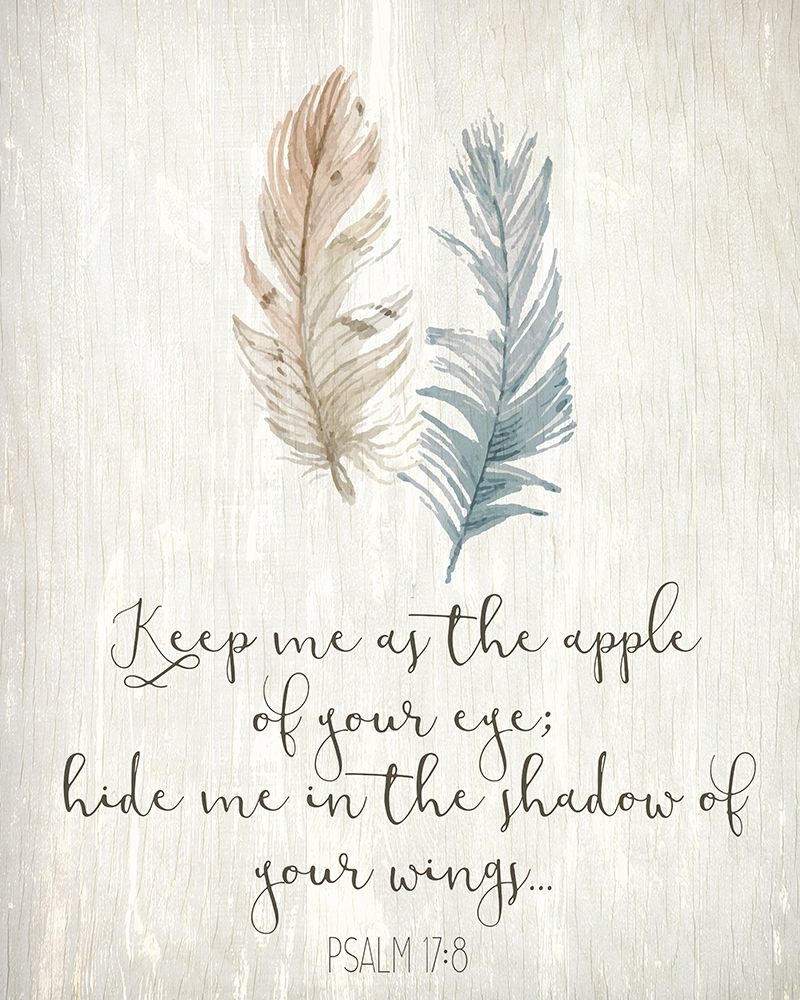 Keep me as the apple
of your eye;
hide me in the shadow of
your wings...
PSALM 17:8